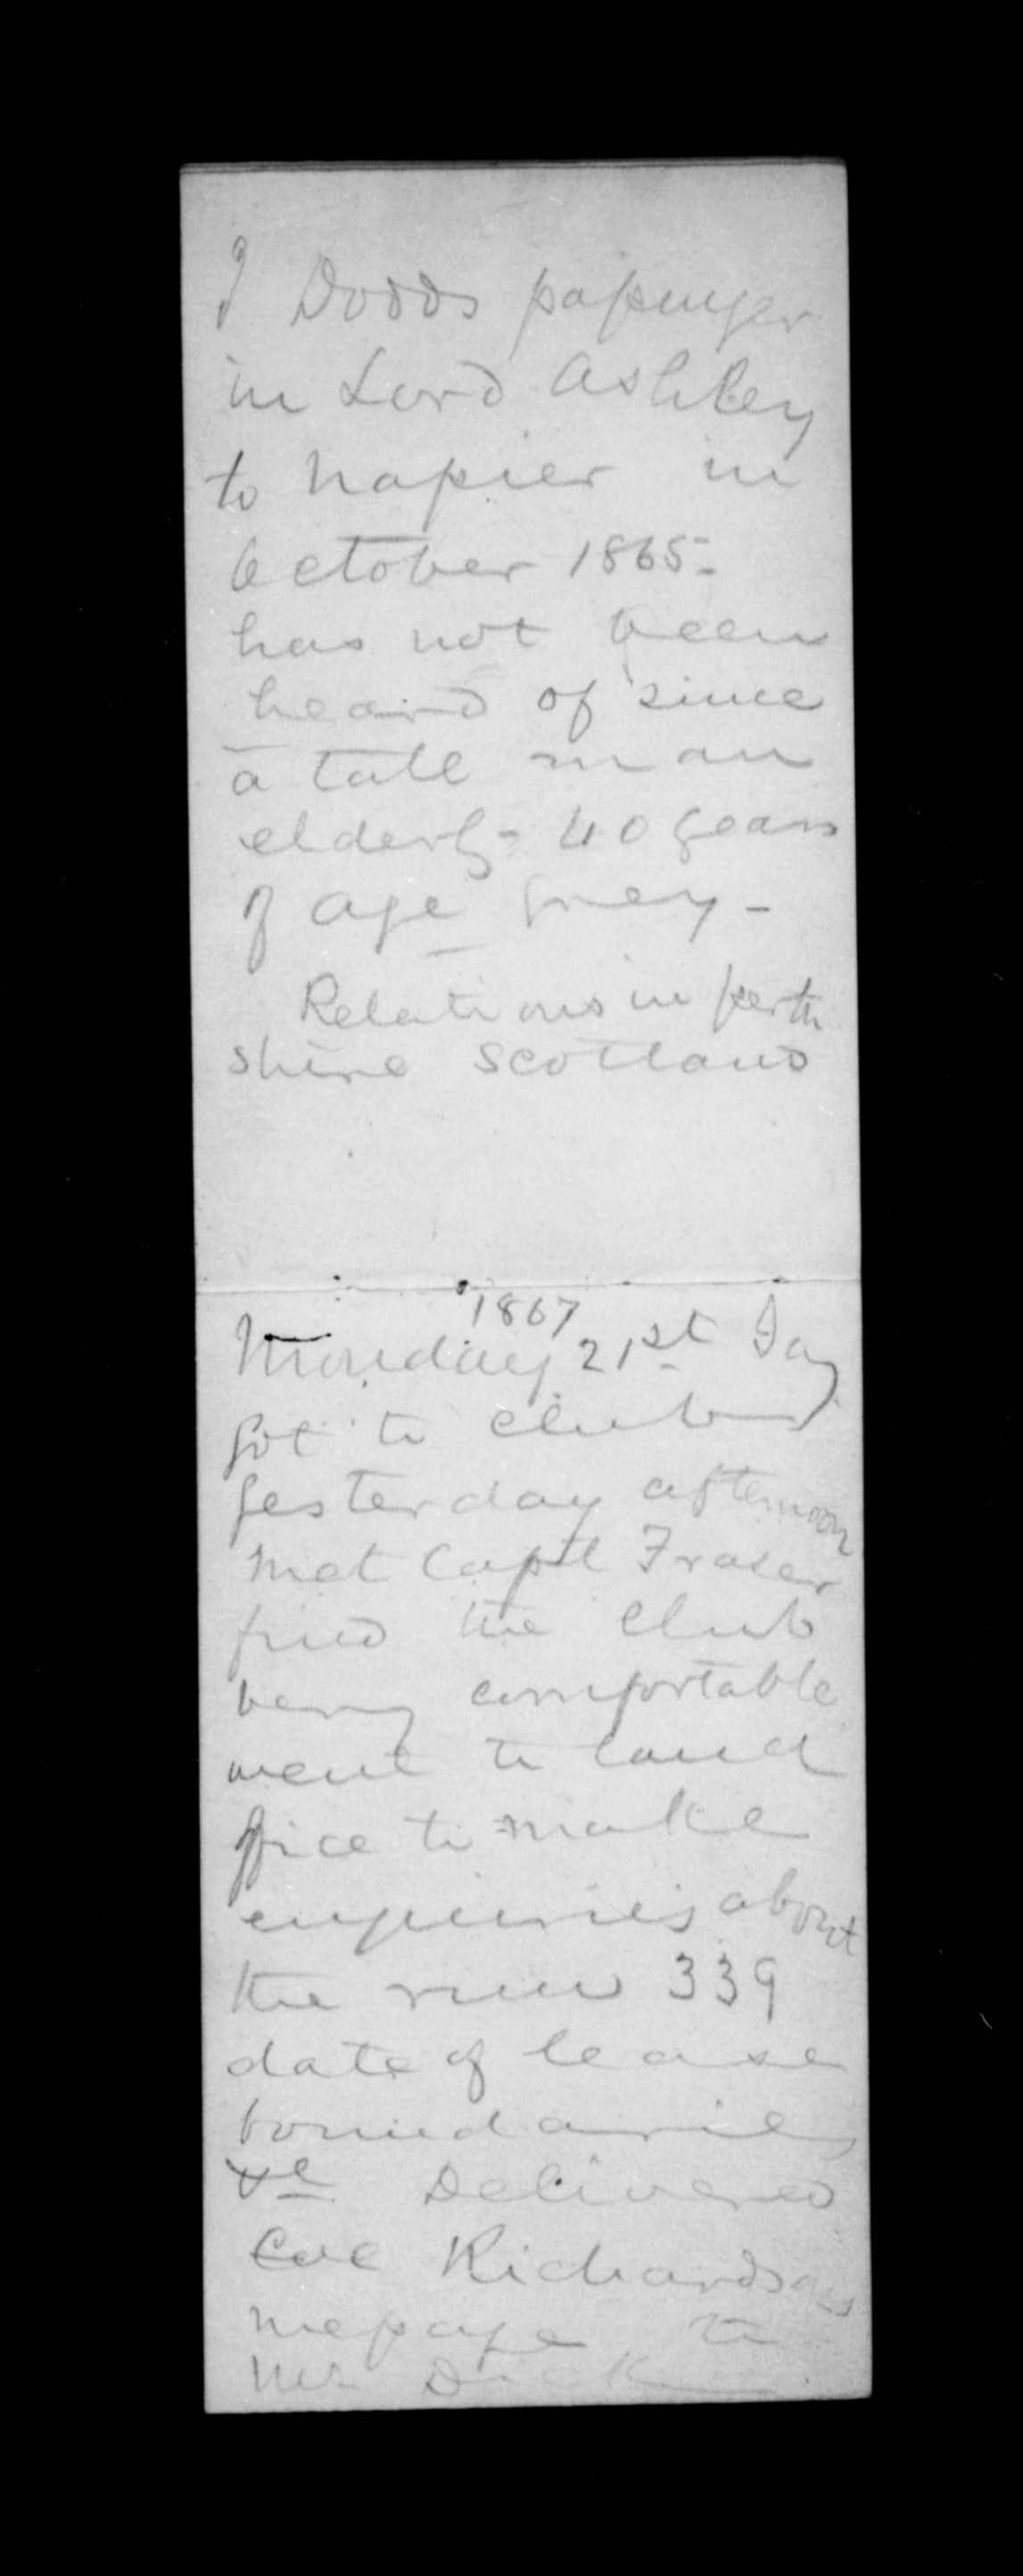 J Dodds passenger
in Lord Ashley
to Napier in
October 1865-
has not been
heard of since
a tall man
elderly - 40 years
of age grey -
Relations in Perth
shire Scotland
1867
Monday 21st Jay
got to club
yesterday afternoon
met Capt Fraser
find the Club
very comfortable
went to land
office to make
enquiries about
the run 339
date of lease
boundaries
&c Delivered
Col Richardsons
message to
Mr Dick